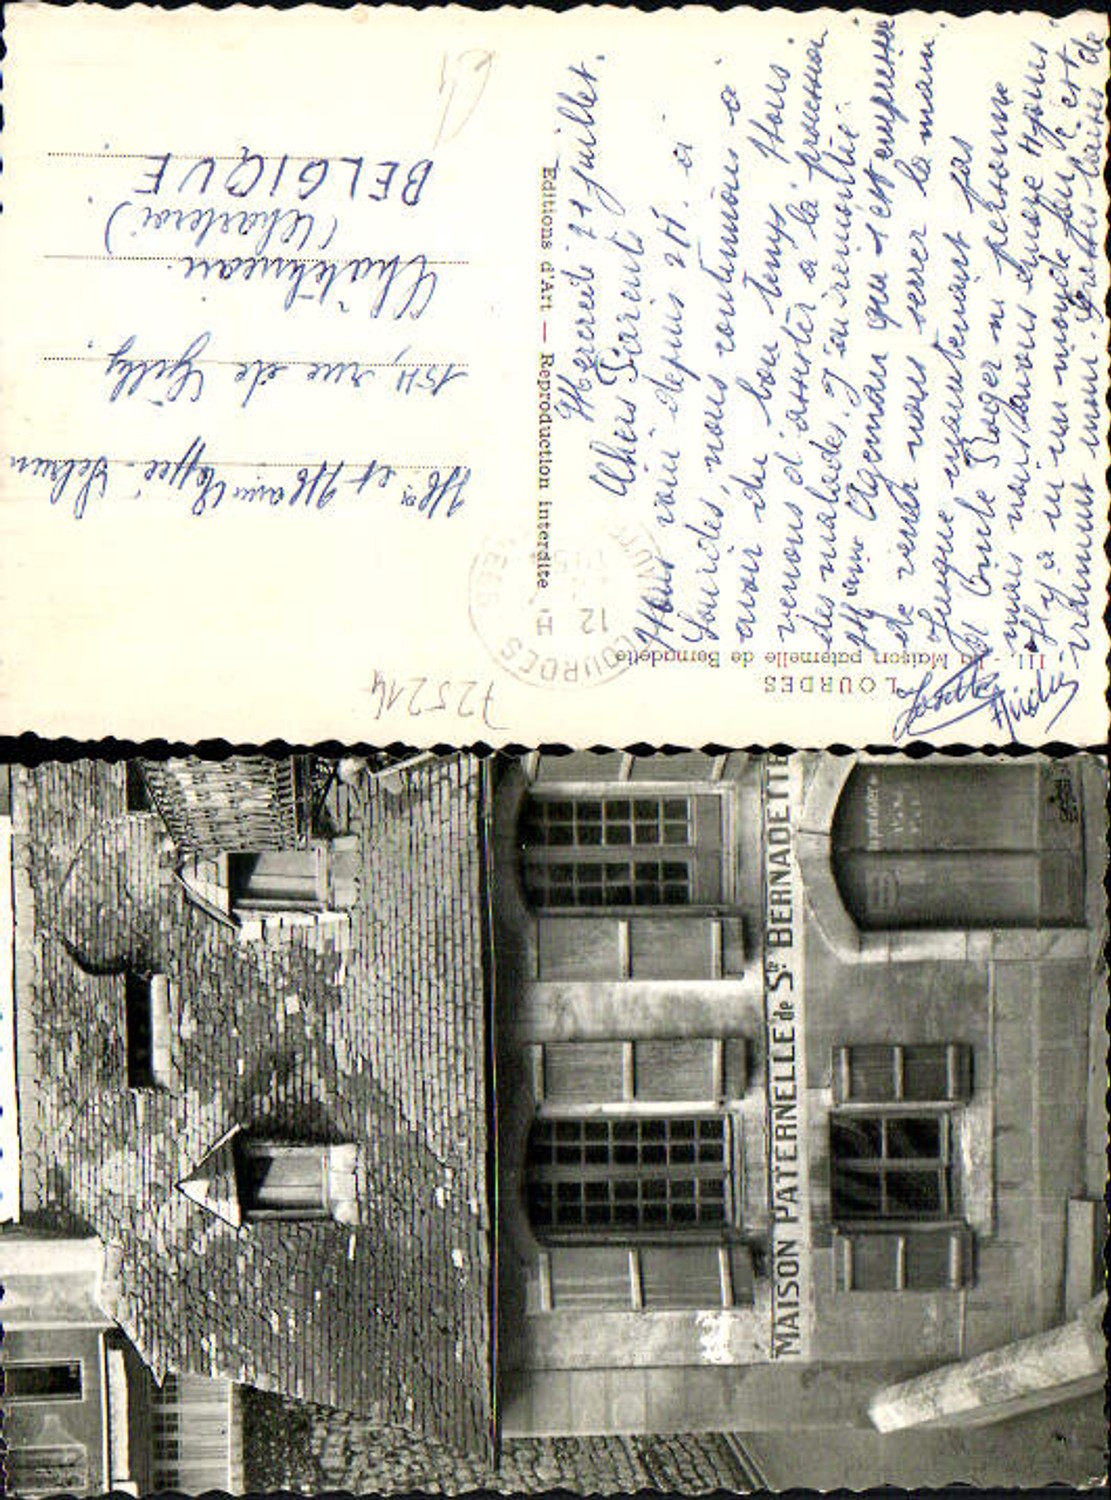 LOURDES
III. - La Maison paternelle de Bernadette
Editions d'Art — Reproduction interdite
Mercredi 21 juillet.
Chers Parents
Nous voici depuis 2 H. à
Lourdes, nous continuons à
avoir du bon temps. Nous
venons d'assister à la procession
des malades. J'ai rencontré
Mme Ageman qui s'est empressée
de venir nous serrer la main.
Jusque maintenant pas
vu Oncle Roger ni personne
mais nous avons encore 4 jours
Il y a ici un monde fou, c'est
vraiment noir. Grosses baises de
Josette
LOURDES
12 H
725214
Mr et Mme
154, rue de Gilly.
Châtelineau.
(Charleroi)
BELGIQUE
MAISON PATERNELLE de Ste BERNADETTE